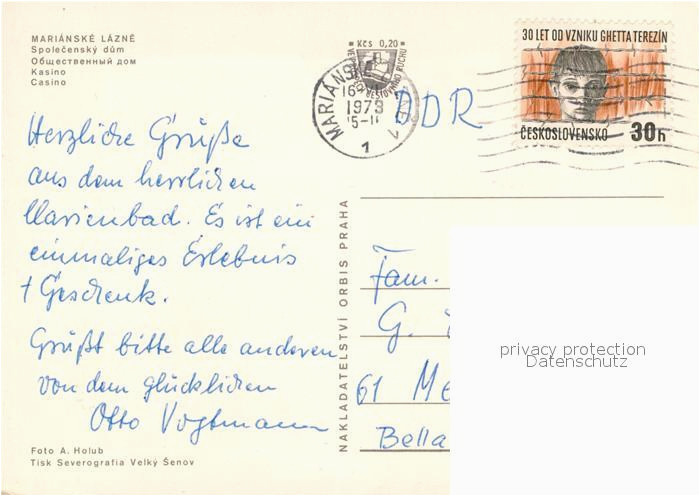 MARIÁNSKÉ LÁZNĚ
Společenský dům
Общественный дом
Kasino
Casino
Kčs 0,20
MARIÁNSKÉ
1978
1
30 LET OD VZNIKU GHETTA TEREZÍN
ČESKOSLOVENSKO 30h
DDR
Herzliche Grüße
aus dem herrlichen
Marienbad. Es ist ein
einmaliges Erlebnis
+ Geschenk.
Grüßt bitte alle anderen
von dem glücklichen
Otto Vogtmann
Foto A. Holub
Tisk Severografia Velký Šenov
NAKLADATELSTVÍ ORBIS PRAHA
Fam.
G.
61 Me
Bella
privacy protection
Datenschutz